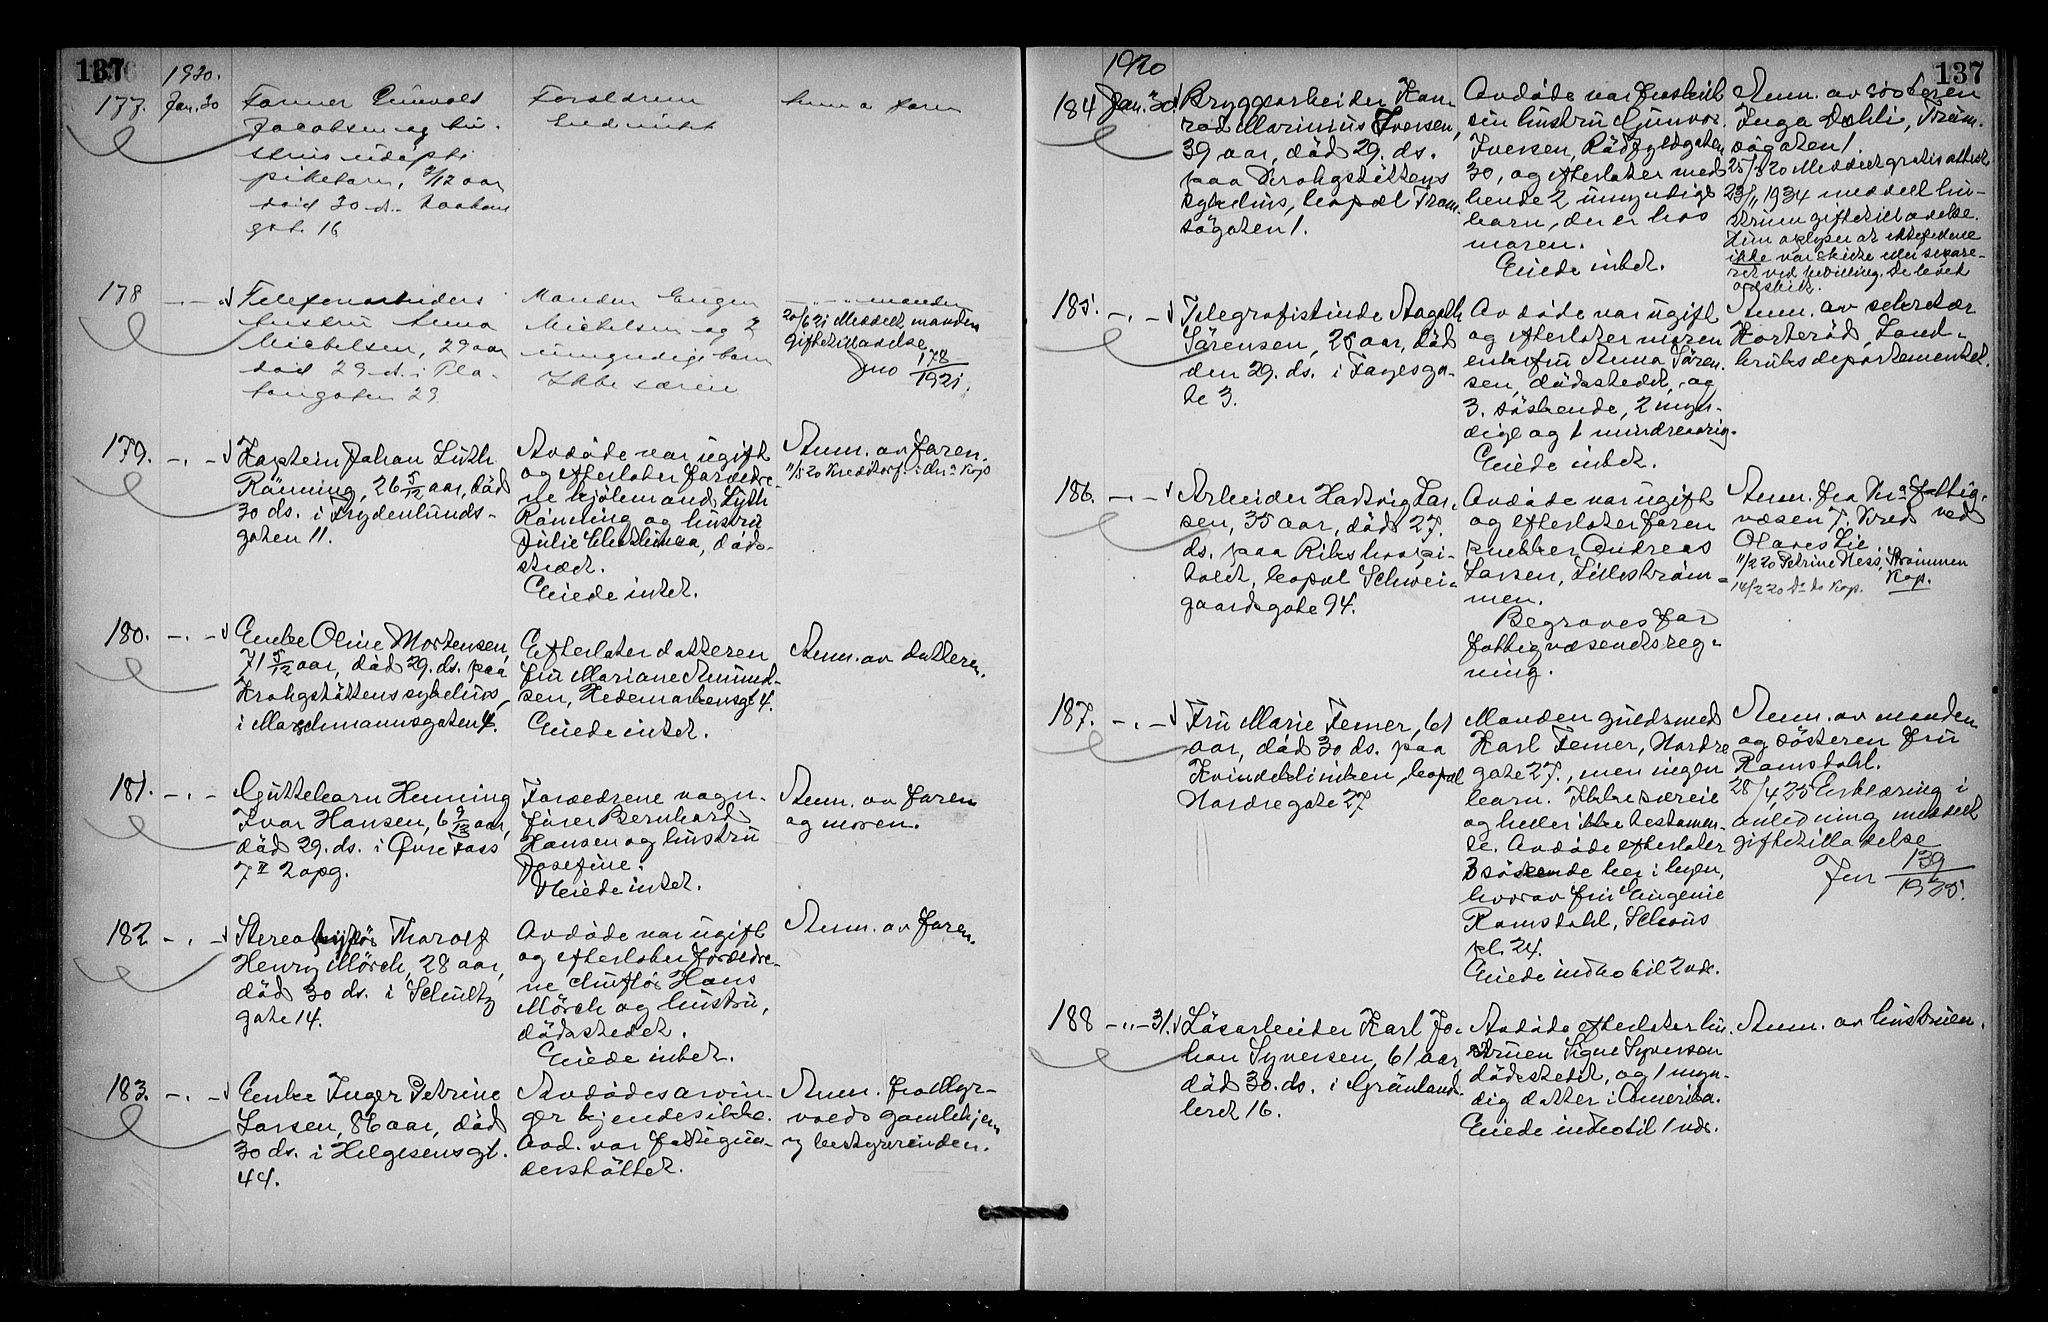 137
1920.
177. Jan. 30
Former
Jacobsen og hu-
strus udøpte
pikebarn, 2/12 aar
død 30 d.
gat. 16
Forældrene
178 - " -
Telefonarbeiders
hustru Anna
Michelsen, 29 aar
død 29 d. i Pla-
tongaten 29
Manden Eugen
Michelsen og 2
umyndige barn
Ikke særeie
- " - manden
20/6 21 Meddelt manden
giftetilladelse
Jno 178/1921.
179. - " -
Kaptein Johan Lüth
Rönning, 26 5/12 aar, död
30 ds. i Frydenlunds-
gaten 11.
Avdöde var ugift
og efterlater foreldre-
ne kjölmand Lyth
Rönning og hustru
Julie, döds-
stedet.
Eiede intet.
Anm. av faren.
180. - " -
Enke Oline Mortensen,
71 5/12 aar, död 29. ds. paa
Krohgstöttens sykehus,
i Marschmannsgaten 4.
Efterlater datteren
fru Mariane Amund-
sen, Hedemarkensgt 4.
Eiede intet.
Anm. av datteren.
181. - " -
Guttebarn Henning
Ivar Hansen, 6 9/12 aar,
död 29. ds. i Övre Foss
7 II 2 opg.
Foreldrene vogn-
förer Bernhard
Hansen og hustru
Josefine.
Eiede intet.
Anm. av faren
og moren.
182 - " -
Stereotypör Thorolf
Henry Mörch, 28 aar,
död 30 ds. i Schultz
gate 14.
Avdöde var ugift
og efterlater foreldre-
ne chufför Hans
Mörch og hustru,
dödsstedet.
Eiede intet.
Anm. av faren.
183. - " -
Enke Inger Petrine
Larsen, 86 aar, död
30 ds. i Helgesensgt.
44.
Avdödes arvin-
ger kjendes ikke.
Avd. var fattigun-
derstöttet.
Anm. fra Myr-
volds gamlehjem
v/ bestyrerinden.
137
1920
184 Jan. 30
Bryggearbeider Kon-
rad Marinius Iversen,
39 aar, död 29. ds.
paa Krohgstöttens
sykehus, bopæl Trom-
sögaten 1.
Avdöde var fraskilt
sin hustru Gunvor
Iversen, Rödfyldgaten
30, og efterlater med
hende 2 umyndige
barn, der er hos
moren.
Eiede intet.
Anm. av söeteren
Inga Dahli, Trom-
sögaten 1.
25/3 20 Meddelt gratis attest
23/11 1934 meddelt hu-
struen giftetilladelse.
Hun oplyser at ektefellene
ikke var skilte eller separe-
ret ved bevilling. De levet
adskilt.
185. - " -
Telegrafistinde Aagoth
Sörensen, 25 aar, död
den 29. ds. i Fayesga-
te 3.
Avdöde var ugift
og efterlater moren
enkefru Anna Sören-
sen, dödsstedet, og
3. söskende, 2 myn-
dige og 1 mindreaarig.
Eiede intet.
Anm. av sekretær
Korteröd, Land-
bruksdepartementet.
186. - " -
Arbeider Hartvig Lar-
sen, 35 aar, död 27.
ds. paa Rikshospi-
talet, bopæl Schwei-
gaardsgate 94.
Avdöde var ugift
og efterlater faren
pukker Andreas
Larsen, Lilleström-
men.
Begraves for
fattigvæsenets reg-
ning.
Anm. fra Kra fattig-
væsen 7. Kreds ved
Olaves Lie.
11/2 20 Petrine Næss, Strömmen
Kop.
14/2 20 Do do Kop.
187. - " -
Fru Marie Femer, 61
aar, död 30 ds. paa
Kvindeklinikken, bopæl
Nordregate 27
Manden guldsmed
Karl Femer, Nordre
gate 27., men ingen
barn. Ikke særeie
og heller ikke testamen-
te. Avdöde efterlater
3 söskende her i byen,
hvorav fru Eugenie
Ramsdahl, Schous
pl. 24.
Eiede indbo til 2 vdr.
Anm. av manden
og sösteren fru
Ramsdahl.
28/4 25 Erklæring i
anledning meddelt
giftetilladelse
Jnr 139/1925.
188 - " - 31.
Lösarbeider Karl Jo-
han Syversen, 61 aar,
död 30. ds. i Grönland-
leret 16.
Avdöde efterlater hu-
struen Signe Syversen
dödsstedet, og 1 myn-
dig datter i Amerika.
Eiede indbo til 1 vdr.
Anm. av hustruen.